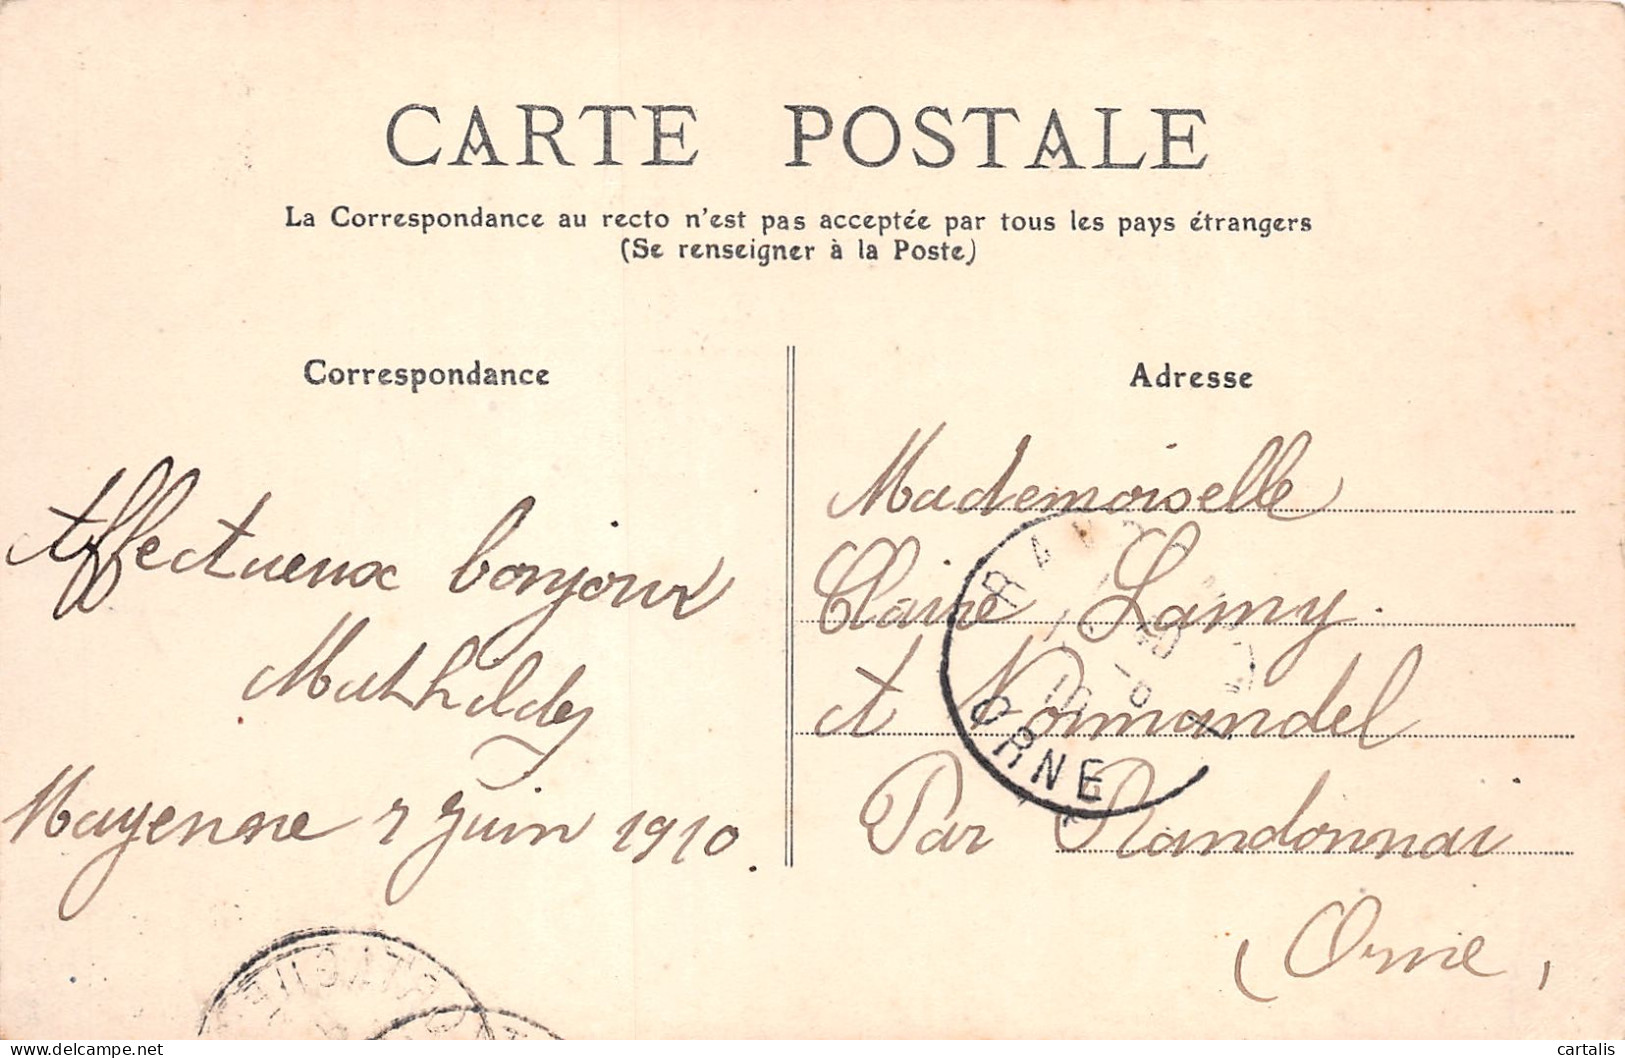 CARTE POSTALE
La Correspondance au recto n'est pas acceptée par tous les pays étrangers
(Se renseigner à la Poste)
Correspondance
Affectueux bonjour
Mathilde
Mayenne 7 Juin 1910.
Adresse
Mademoiselle
Claire Lamy.
A Normandel
Par Randonnai
(Orne)
ORNE
cartalis